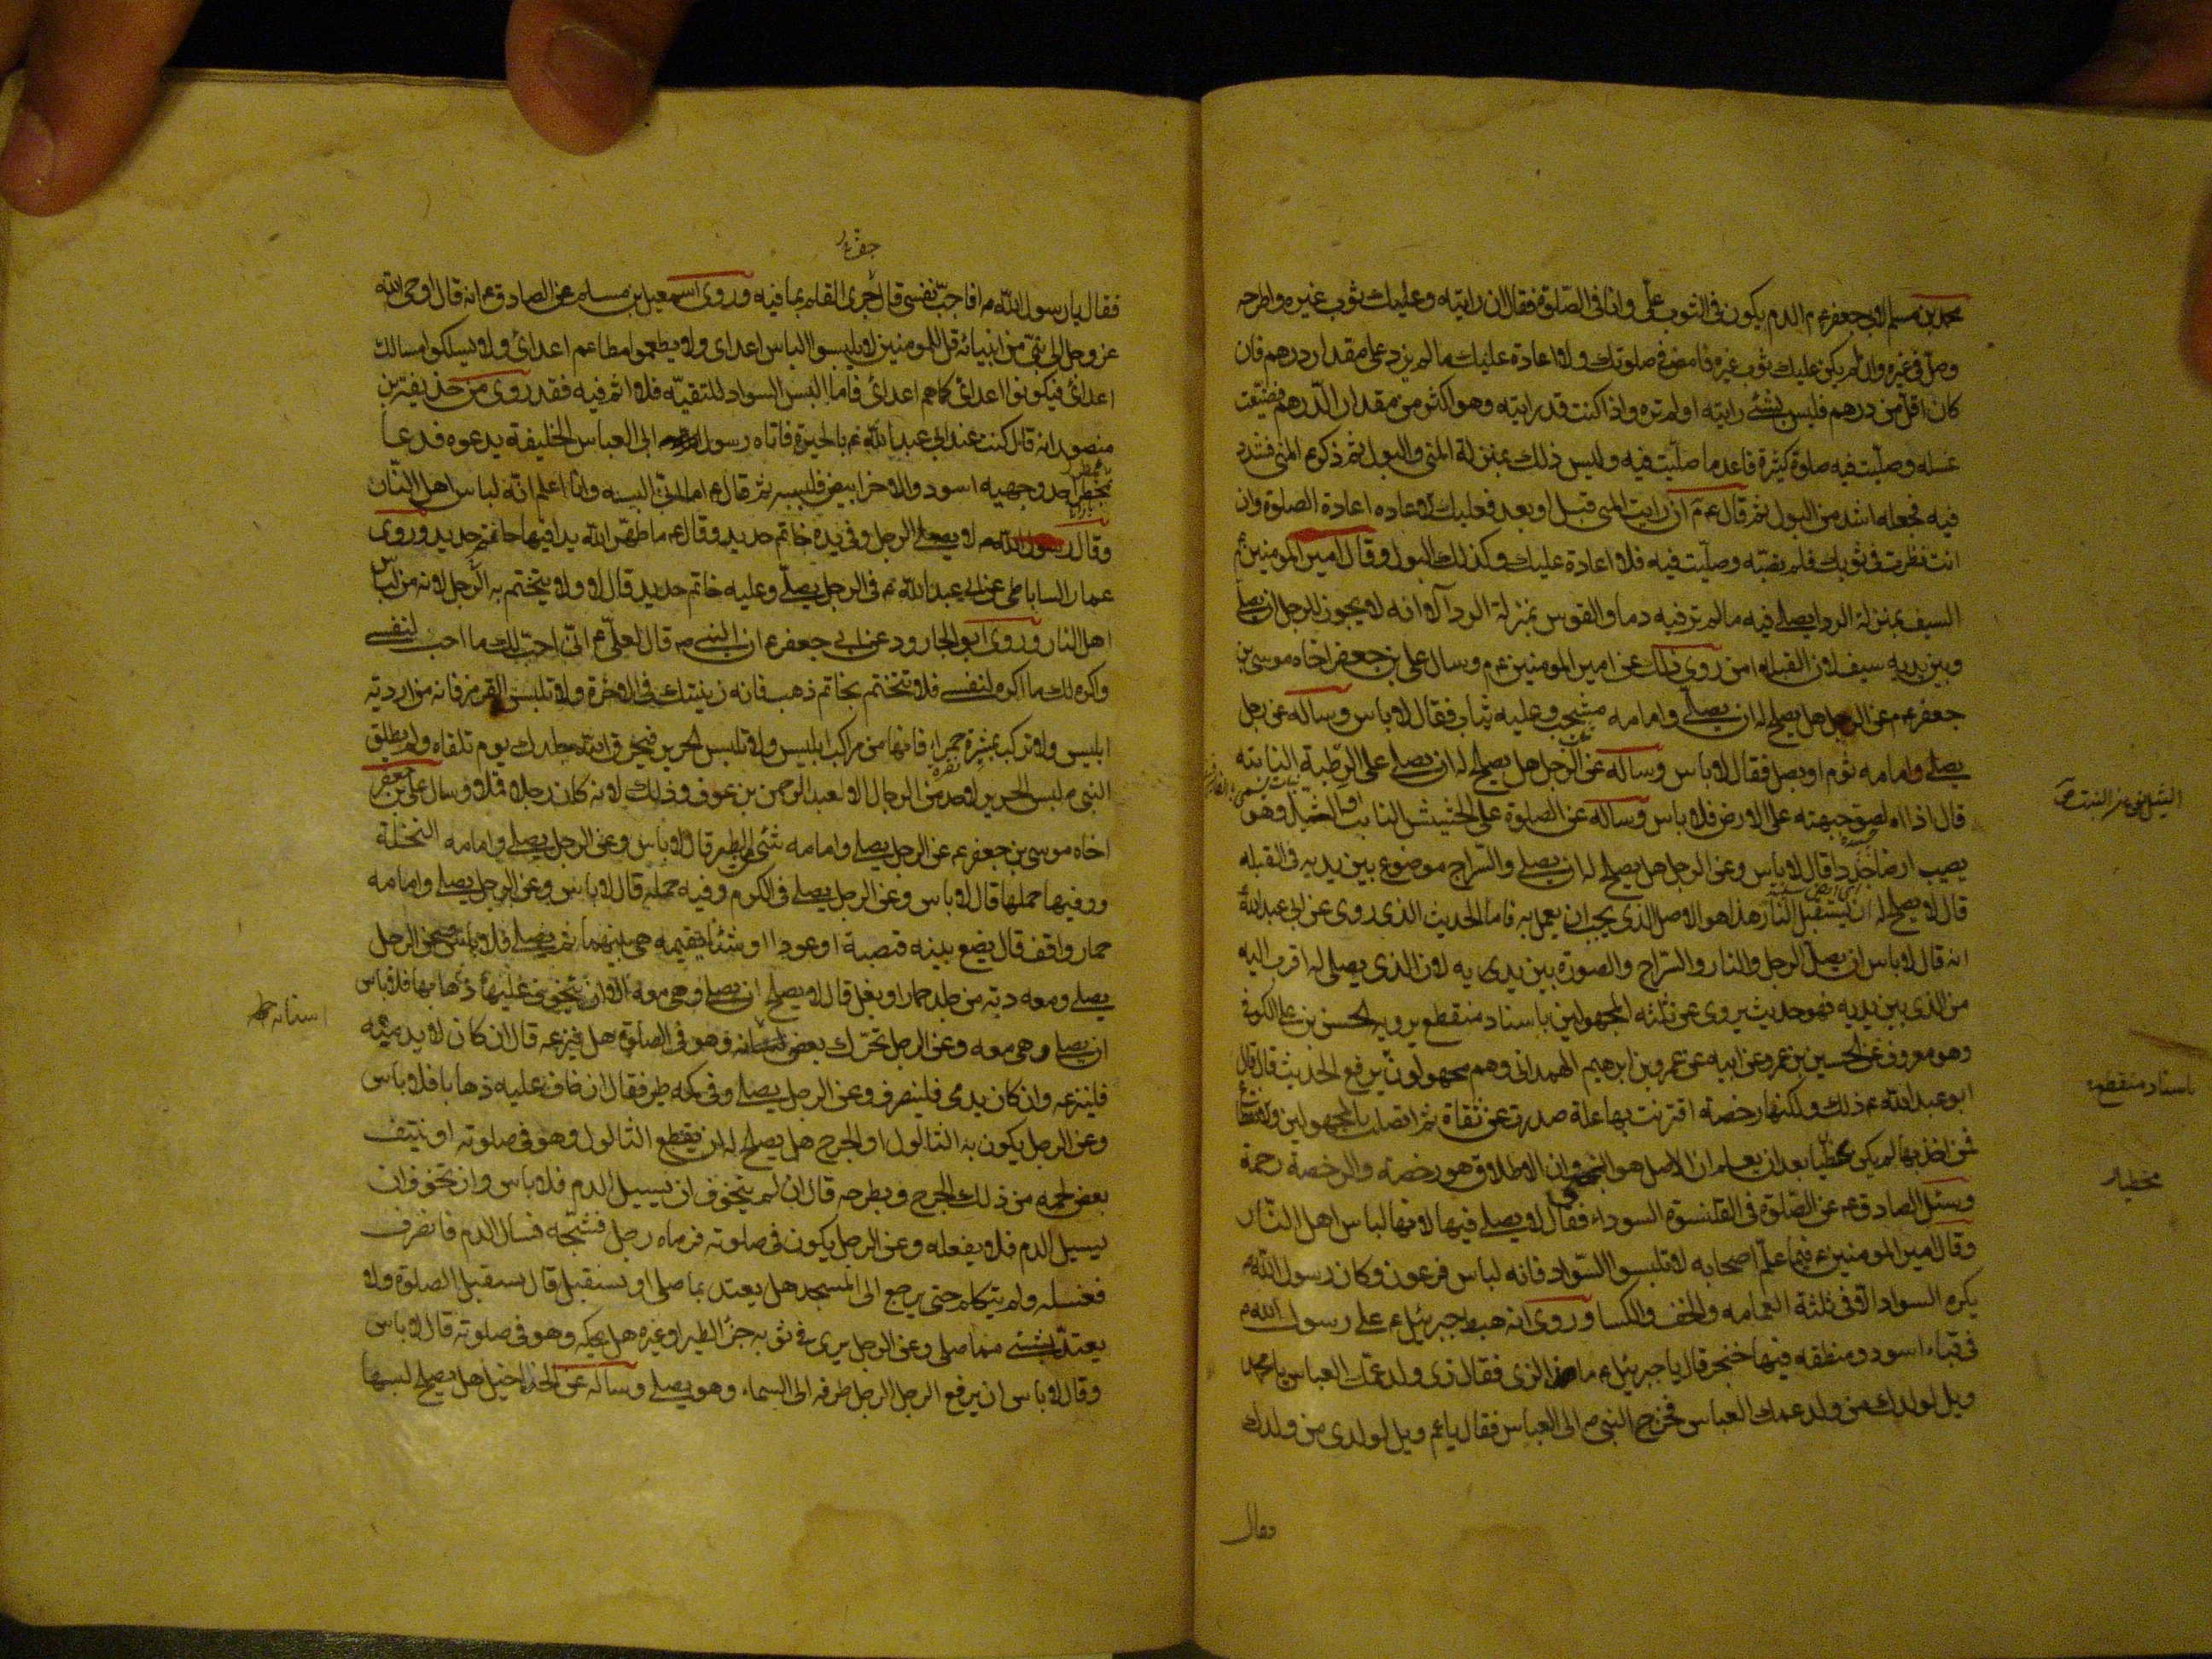 محمد بن مسلم لابی جعفر ع م الدم يكون فی الثوب علیّ وانا فی الصّلوة فقال ان رايته وعليك ثوب غيره فاطرحه
وصلّ فی غيره وان لم يكن عليك ثوب غيره فامض فی صلوتك ولا اعادة عليك ما لم يزد علی مقدار درهم فان
كان اقلّ من درهم فليس بشئ رايته او لم تره واذا كنت قد رايته وهو اكثر من مقدار الدّرهم فضيّعت
غسله وصلّيت فيه صلوة كثيرة فاعد ما صلّيت فيه وليس ذلك بمنزلة المنی والبول ثم ذكر ع المنی فشدد
فيه فجعله اشد من البول ثم قال ع م ان رايت المنی قبل او بعد فعليك الاعاده اعادة الصلوة وان
انت نظرت فی ثوبك فلم تصبه وصلّيت فيه فلا اعادة عليك وكذلك البول وقال امير المومنين ع
السيف بمنزلة الردا يصلی فيه ما لم تر فيه دما والقوس بمنزلة الردا الا انه لا يجوز للرجل ان يصلّی
وبين يديه سيف لان القبله امن روی ذلك عن امير المومنين ع م وسال علی بن جعفر اخاه موسی بن
جعفر ع م عن الرجل هل يصلح له ان يصلّی وامامه مشجب وعليه ثياب فقال لا باس وساله عن رجل
يصلی وامامه ثوم او بصل فقال لا باس وساله عن الرجل هل يصلح له ان يصلی علی الرطبة النابته
قال اذا لصق جبهته علی الارض فلا باس وساله عن الصلوة علی الحشيش النابت او الثيل وهو
يصيب ارضا جددا قال لا باس وعن الرجل هل يصلح له ان يصلی والسّراج موضوع بين يديه فی القبله
قال لا يصلح له ان يستقبل النار هذا هو الاصل الذی يجب ان يعمل به فاما الحديث الذی روی عن ابی عبد الله
انه قال لا باس ان يصلّی الرجل والنار والسّراج والصورة بين يديه لان الذی يصلی له اقرب اليه
من الذی بين يديه فهو حديث يروی عن ثلثه المجهولين باسناد منقطع يرويه الحسن بن علی الكوفی
وهو معروف عن الحسين بن عمرو عن ابيه عن عمرو بن ابرهيم الهمدانی وهم مجهولون يرفع الحديث قال قال
ابو عبد الله ع ذلك ولكنها رخصة اقترنت بها علة صدرت عن ثقاة ثم اتصلت بالمجهولين والانقطاع
فمن اخذ بها لم يكن مخطيا بعد ان يعلم ان الاصل هو النهی وان الاطلاق هو رخصة والرخصة رحمة
وسئل الصادق ع م عن الصّلوة فی القلنسوة السوداء فقال لا يصلی فيها لانها لباس اهل النّار
وقال امير المومنين ع فيما علّم اصحابه لا تلبسوا السّواد فانه لباس فرعون وكان رسول الله ص
يكره السواد الا فی ثلثة العمامه والخف والكسا وروی انه هبط جبرئيل ع علی رسول الله ص
فی قباء اسود ومنطقه فيها خنجر قال يا جبرئيل ع ما هذا الزی فقال زی ولد عمّك العباس يا محمد
ويل لولدك من ولد عمك العباس فخرج النبی ص الی العباس فقال يا عم ويل لولدی من ولدك
فقال
باسناد منقطع
فقال يا رسول الله ص افاجبّ نفسی قال جری القلم بما فيه وروی اسمعيل بن مسلم عن الصادق ع انه قال اوحی الله
عز وجل الی نبیّ من انبيائه قل للمومنين لا يلبسوا لباس اعدای ولا يطعموا مطاعم اعدائی ولا يسلكوا مسالك
اعدائی فيكونوا اعدائی كما هم اعدائی فاما لبس السواد للتقيّه فلا اثم فيه فقد روی عن حذيفة بن
منصور انه قال كنت عند ابی عبد الله ع بالحيرة فاتاه رسول ابی العباس الخليفة يدعوه فدعا
بممطر احد وجهيه اسود والاخر ابيض فلبسه ثم قال ع اما انی البسه وانا اعلم انّه لباس اهل النّار
وقال رسول الله ص لا يصلی الرجل وفی يده خاتم حديد وقال ع ما طهّر الله يدا فيها خاتم حديد وروی
عمار الساباطی عن ابی عبد الله ع فی الرجل يصلّی وعليه خاتم حديد قال لا ولا يتختم به الرّجل لانه من لباس
اهل النار وروی ابو الجارود عن ابی جعفر ع ان النبی ص قال لعلیّ ع انّی احبّ لك ما احب لنفسی
واكره لك ما اكره لنفسی فلا تتختم بخاتم ذهب فانه زينتك فی الاخرة ولا تلبس القرمز فانه من اردية
ابليس ولا تركب بميثرة حمراء فانها من مراكب ابليس ولا تلبس الحرير فيحرق الله جلدك يوم تلقاه ولم يطلق
النبی ص لبس الحرير لاحد من الرجال الا لعبد الرحمن بن عوف وذلك لانه كان رجلا قملا وسال علی بن جعفر
اخاه موسی بن جعفر ع م عن الرجل يصلی وامامه شئ من الطير قال لا باس وعن الرجل يصلی وامامه النخلة
وفيها حملها قال لا باس وعن الرجل يصلی فی الكرم وفيه حمله قال لا باس وعن الرجل يصلی وامامه
حمار واقف قال يضع بينه قصبة او عودا او شئا يقيمه بينهما ثم يصلی فلا باس وعن الرجل
يصلی ومعه دبة من جلد حمار او بغل قال لا يصلح ان يصلی وهی معه الا ان يتخوف عليها ذهابها فلا باس
ان يصلی وهی معه وعن الرجل تحرّك بعض اسنانه وهو فی الصلوة هل ينزعه قال ان كان لا يدميه
فلينزعه وان كان يدمی فلينصرف وعن الرجل يصلی وفی كمه طير فقال ان خاف عليه ذهابا فلا باس
وعن الرجل يكون به الثالول او الجرح هل يصلح له ان يقطع الثالول وهو فی صلوته او ينتف
بعض لحمه من ذلك الجرح ويطرحه قال ان لم يتخوف ان يسيل الدم فلا باس وان تخوف ان
يسيل الدم فلا يفعله وعن الرجل يكون فی صلوته فرماه رجل فشجّه فسال الدم فانصرف
فغسله ولم يتكلم حتی يرجع الی المسجد هل يعتد بما صلی او يستقبل قال يستقبل الصلوة ولا
يعتدّ بشئ مما صلی وعن الرجل يری فی ثوبه خرء الطير او غيره هل يحكه وهو فی صلوته قال لا باس
وقال لا باس ان يرفع الرجل الرجل طرفه الی السماء وهو يصلی وساله عن الخلاخيل هل يصلح لبسها